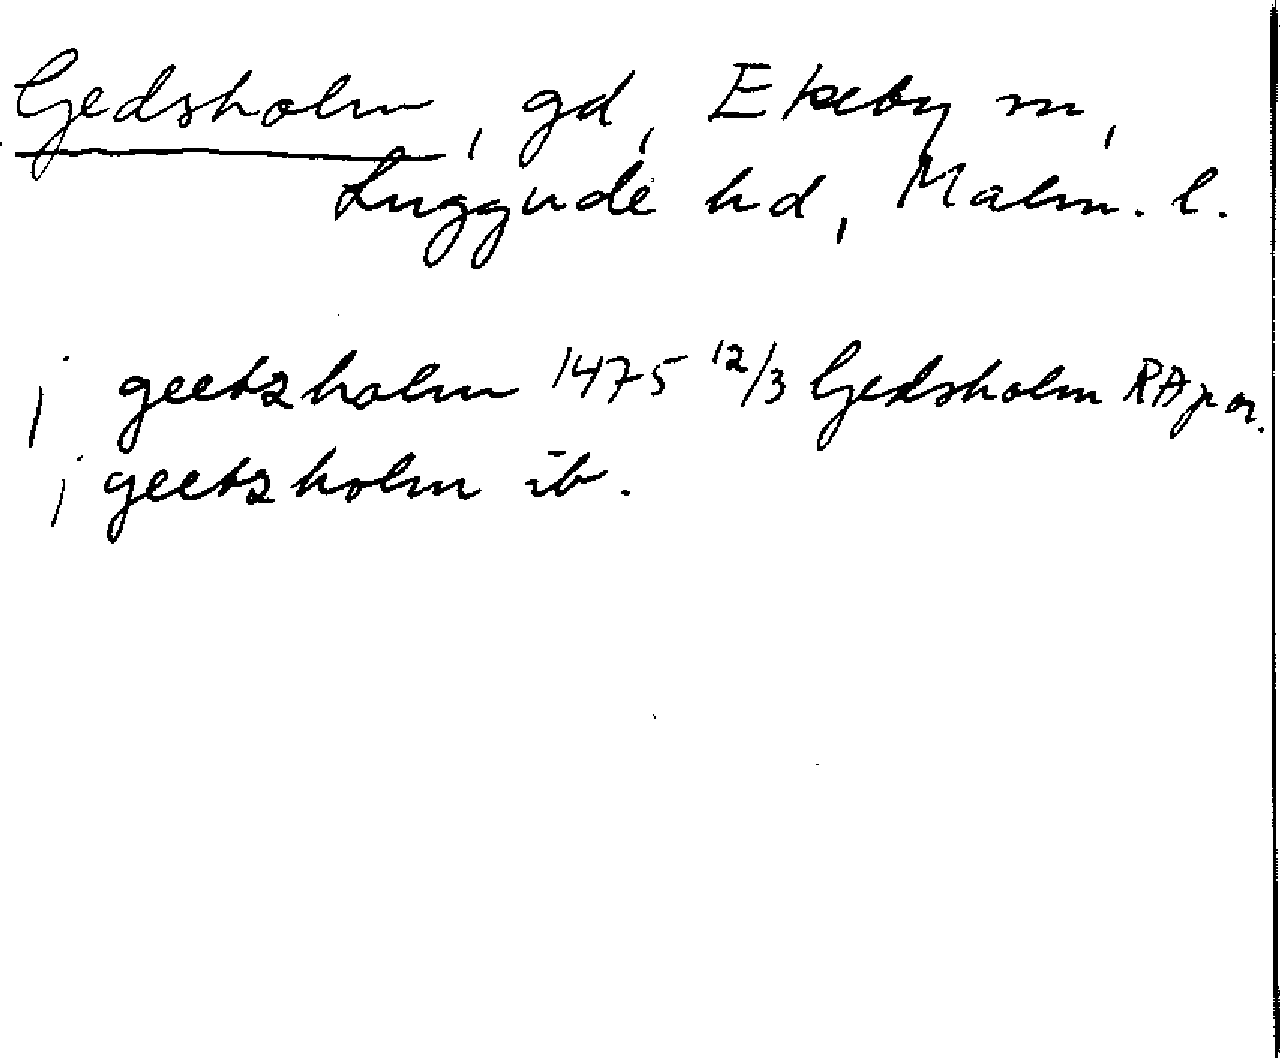 Gedsholm, gd, Ekeby sn,
Luggude hd, Malm. l.
j geetzholm 1475 12/3 Gedsholm RAp or.
j geetzholm ib.